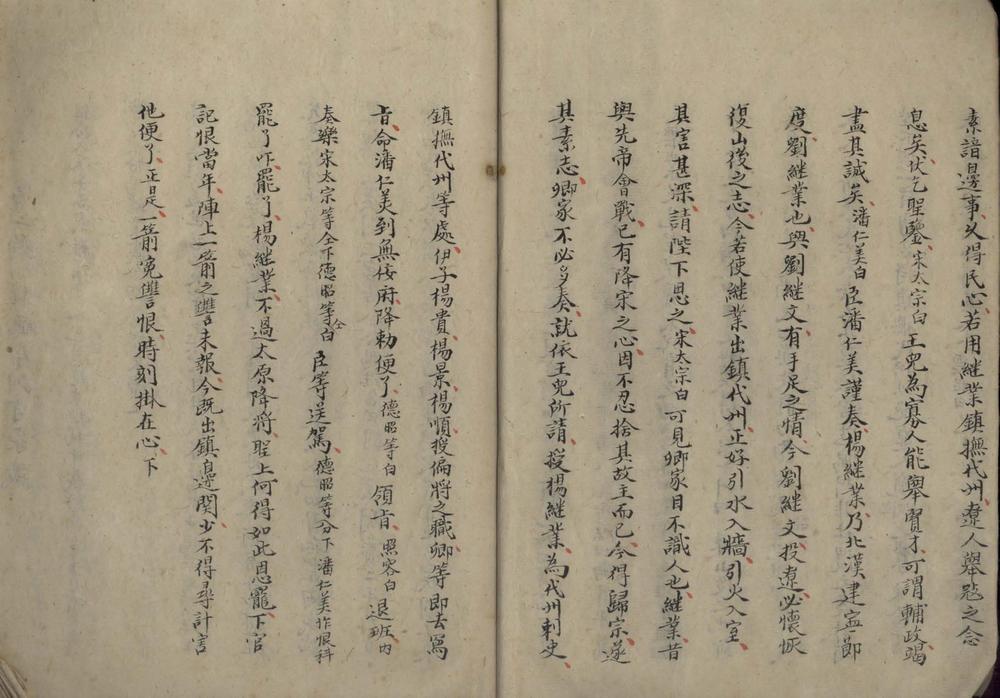 素諳邊事久得民心若用継業鎮撫代州遼人舉趾之念
息矣伏乞聖鑒宋太宗白王兒為寡人能舉賢才可謂輔政竭
盡其誠矣潘仁美白臣潘仁美謹奏楊継業乃北漢建寧節
度劉継業也與劉継文有手足之情今劉継文投遼必懷恢
復山後之志今若使継業出鎮代州正好引水入牆引火入室
其害甚深請陛下思之宋太宗白可見卿家目不識人也継業昔
與先帝會戰已有降宋之心因不忍捨其故主而已今得歸宗遂
其素志卿家不必多奏就依王兒所請授楊継業為代州刺史
鎮撫代州等處伊子楊貴楊景楊順授偏將之職卿等即去寫
旨命潘仁美到無佞府降勅便了德昭等白領旨照容白退班内
奏樂宋太宗等仝下德昭等仝白臣等送駕德昭等分下潘仁美作恨科
罷了吓罷了楊継業不過太原降將聖上何得如此恩寵下官
記恨當年陣上一箭之讐未報今既出鎮邊関少不得尋計害
他便了正是一箭寃讐恨時刻掛在心下